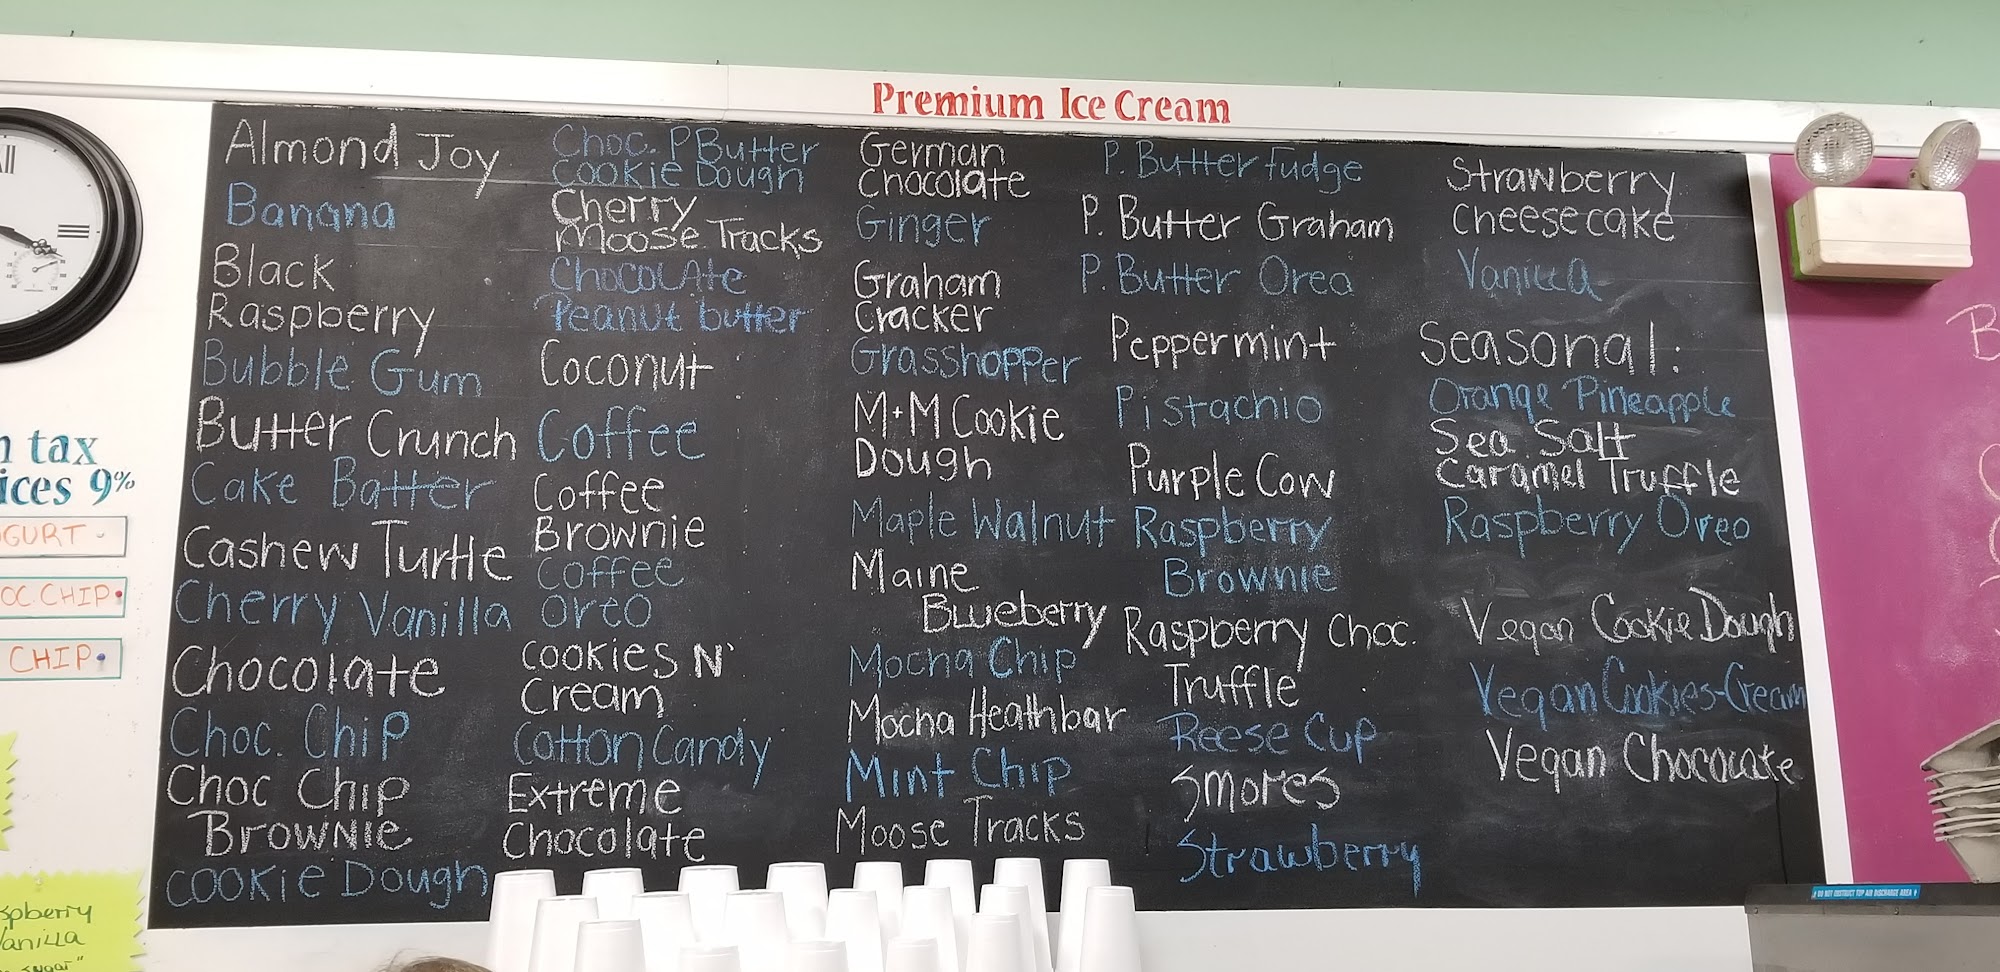 Premium Ice Cream
Almond Joy
Banana
Black
Raspberry
Bubble Gum
Butter Crunch
Cake Batter
Cashew Turtle
Cherry Vanilla
Chocolate
Choc. Chip
Choc Chip
Brownie
Cookie Dough
Choc. P Butter
Cookie Dough
Cherry
Moose Tracks
Chocolate
Peanut butter
Coconut
Coffee
Coffee
Brownie
Coffee
Oreo
Cookies N'
Cream
Cotton Candy
Extreme
Chocolate
German
Chocolate
Ginger
Graham
Cracker
Grasshopper
M+M Cookie
Dough
Maple Walnut
Maine
Blueberry
Mocha Chip
Mocha Heathbar
Mint Chip
Moose Tracks
P. Butter Fudge
P. Butter Graham
P. Butter Oreo
Peppermint
Pistachio
Purple Cow
Raspberry
Brownie
Raspberry Choc.
Truffle
Reese Cup
Smores
Strawberry
Strawberry
Cheesecake
Vanilla
Seasonal:
Orange Pineapple
Sea Salt
Caramel Truffle
Raspberry Oreo
Vegan Cookie Dough
Vegan Cookies-Cream
Vegan Chocolate
tax
ices 9%
GURT
OC CHIP
CHIP
spberry
Vanilla
sugar"
B
DO NOT OBSTRUCT TOP AIR DISCHARGE AREA